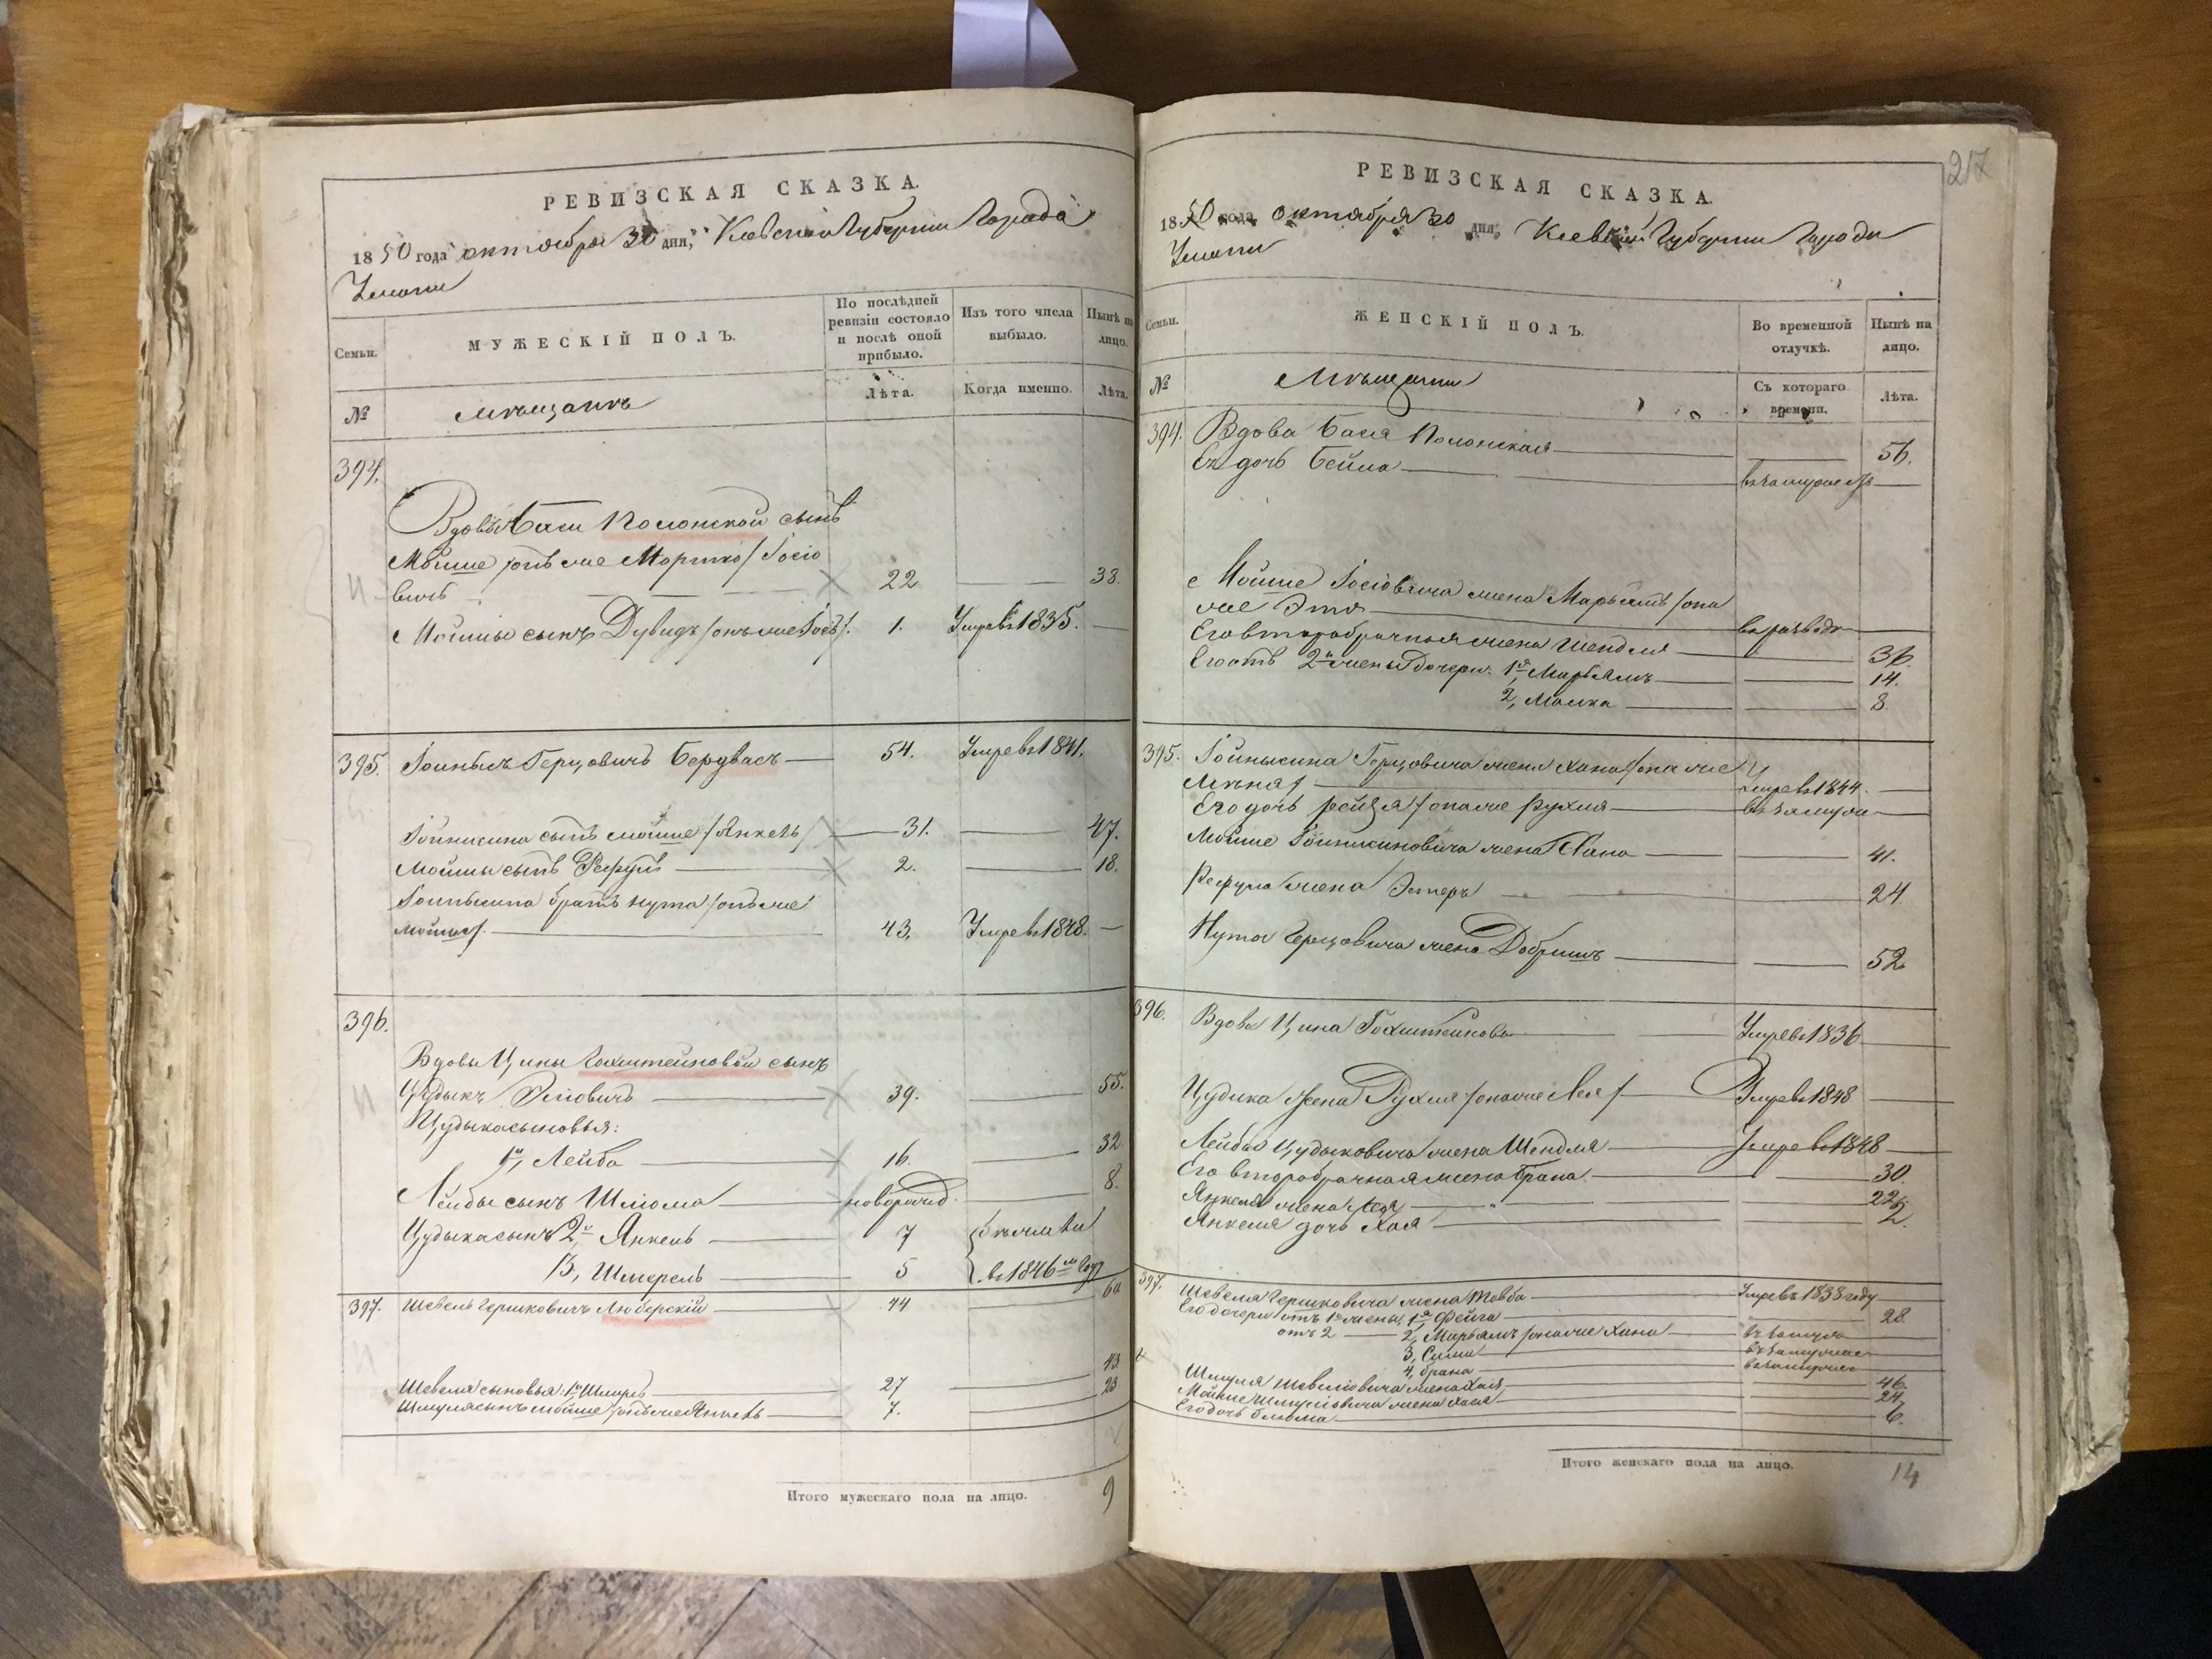 РЕВИЗСКАЯ СКАЗКА.
1850 года октября 30 дня, Кіевской Губерніи Города
Умани
Семьи.
МУЖЕСКІЙ ПОЛЪ.
По послѣдней ревизіи состояло и послѣ оной прибыло.
Изъ того числа выбыло.
Нынѣ на лицо.
№
Мѣщанъ
Лѣта.
Когда именно.
Лѣта.
394.
Вдовы Баси Полонской сынъ
Мойше /онъ же Мортко/ Іосіо
вичъ 22 38.
Мойши сынъ Дувидъ /онъ же Іось/. 1. Умре въ 1835.
395. Іойнысъ Герцовичъ Бердвасъ 54. Умре въ 1841.
Іойнисина сынъ Мойше /Янкель/ 31. 47.
Мойши сынъ Рефулъ 2. 18.
Іойнысина братъ Нута /онъ же
Мойше/. 43. Умре въ 1848.
396.
Вдовы Цины Гохштейновой сынъ
Цудыкъ Эліовичъ 39. 55.
Цудыка сыновья:
1й, Лейба 16. 32
Лейбы сынъ Шліома новорожд. 8.
Цудыка сынъ 2й Янкель 7 бѣжали
3, Шмерель 5 въ 1846м году
397. Шевель Гершковичъ Люберскій 44 60
Шевеля сыновья: 1й Шмуль 27 43
Шмуля сынъ Мойше /онъ же Янкель 7. 23
Итого мужескаго пола на лицо. 9
217
РЕВИЗСКАЯ СКАЗКА.
1850 года октября 30 дня, Кіевской Губерніи Города
Умани
Семьи.
ЖЕНСКІЙ ПОЛЪ.
Во временной отлучкѣ.
Нынѣ на лицо.
№
Мѣщанъ
Съ котораго времени.
Лѣта.
394. Вдова Бася Полонская 56.
Ея дочь Бейла въ замужествѣ
Мойше Іосіовича жена Марьямъ /она
же Этя въ разводе
Его второбрачная жена Шендля 36.
Его отъ 2й жены дочери: 1я Марьямъ 14.
2, Малка 8
395. Іойнысина Герцовича жена Хана /она же
умре въ 1844.
Его дочь Рейзя /она же Рухля въ замуже
Мойше Іойнисиновича жена Хана 41.
Рефула жена Эстеръ 24
Нута Герцовича жена Добришъ 52
396. Вдова Цина Гохштейнова Умре въ 1836
Цудыка жена Рухля /она же Лея/ Умре въ 1848
Лейба Цудыковича жена Шендля Умре въ 1848
Его второбрачная жена Брана 30.
Янкеля жена Лея 22
Янкеля дочь Хая 2.
397. Шевеля Гершковича жена Товба Умре въ 1838 году
Его дочери отъ 1й жены, 1я Фейга 28
отъ 2 2, Марьямъ /она же Хана въ замуж
3, Сима въ замуж
4, Брана въ замуж
Шмуля Шевеліовича жена Хая 46.
Мойше Шмуліовича жена Хася 24,
Его дочь Блюма 6.
Итого женскаго пола на лицо. 14